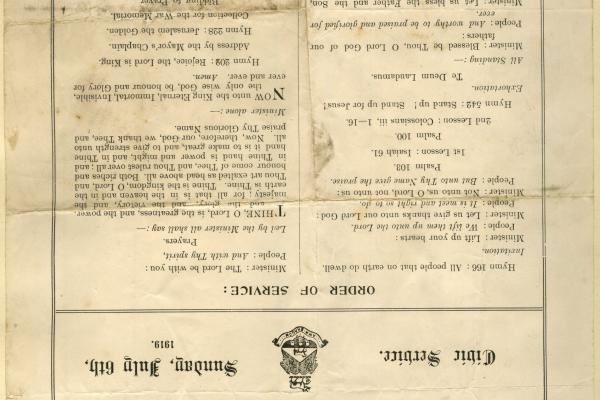 Civic Service.
Sunday, July 6th,
1919.
ORDER OF SERVICE:
Hymn 166: All people that on earth do dwell.
Invitation.
Minister: Lift up your hearts:
People: We lift them up unto the Lord.
Minister: Let us give thanks unto our Lord God:
People: It is meet and right so to do.
Minister: Not unto us, O Lord, not unto us:
People: But unto Thy Name give the praise.
Psalm 103.
1st Lesson: Isaiah 61.
Psalm 100.
2nd Lesson: Colossians iii, 1—16.
Hymn 642: Stand up! Stand up for Jesus!
Exhortation.
Te Deum Laudamus.
All Standing:—
Minister: Blessed be Thou, O Lord God of our
fathers:
People: And worthy to be praised and glorified for
ever.
Minister: Let us bless the Father and the Son,
Minister: The Lord be with you:
People: And with Thy spirit,
Prayers.
Let by the Minister all shall say:—
THINE, O Lord, is the greatness, and the power,
and the glory, and the victory, and the
majesty: for all that is in the heaven and in the
earth is Thine. Thine is the kingdom, O Lord, and
Thou art exalted as head above all. Both riches and
honour come of Thee, and Thou rulest over all; and
in Thine hand is power and might, and in Thine
hand it is to make great, and to give strength unto
all. Now, therefore, our God, we thank Thee, and
praise Thy Glorious Name.
Minister alone:—
NOW unto the King Eternal, Immortal, Invisible,
the only wise God, be honour and Glory for
ever and ever. Amen.
Hymn 202: Rejoice, the Lord is King.
Address by the Mayor's Chaplain.
Hymn 228: Jerusalem the Golden.
Collection for the War Memorial.
Bidding to Prayer